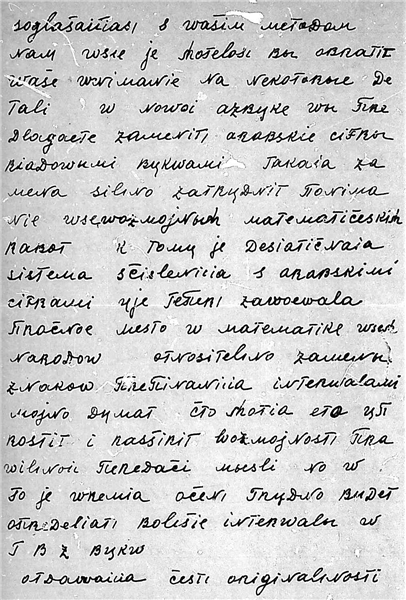 soglašaiasi s wašim metodom
nam wsie je hotelosi bы obratit
waše wnimanie na nekotorыe de
tali w nowoi azbyke wы pre
dlagaete zameniti arabskie cifrы
riadowыmi bykwami takaia za
mena silino zatrydnit ponima
nie wsewozmojnыh matematičeskih
rabot k tomy je desiatičnaia
sistema sčisleniia s arabskimi
ciframi yje teperi zawoewala
pročnoe mesto w matematike wseh
narodow otnositelino zamenы
znakow prepinaniia interwalami
mojno dymat čto hotia eto yp
rostit i rasširit wozmojnosti pra
wilinoi peredači mыsli no w
to je wremia očeni trydno bydet
opredeliati bolišie interwalы w
T B Z bykw
otdawaia česti originalinosti